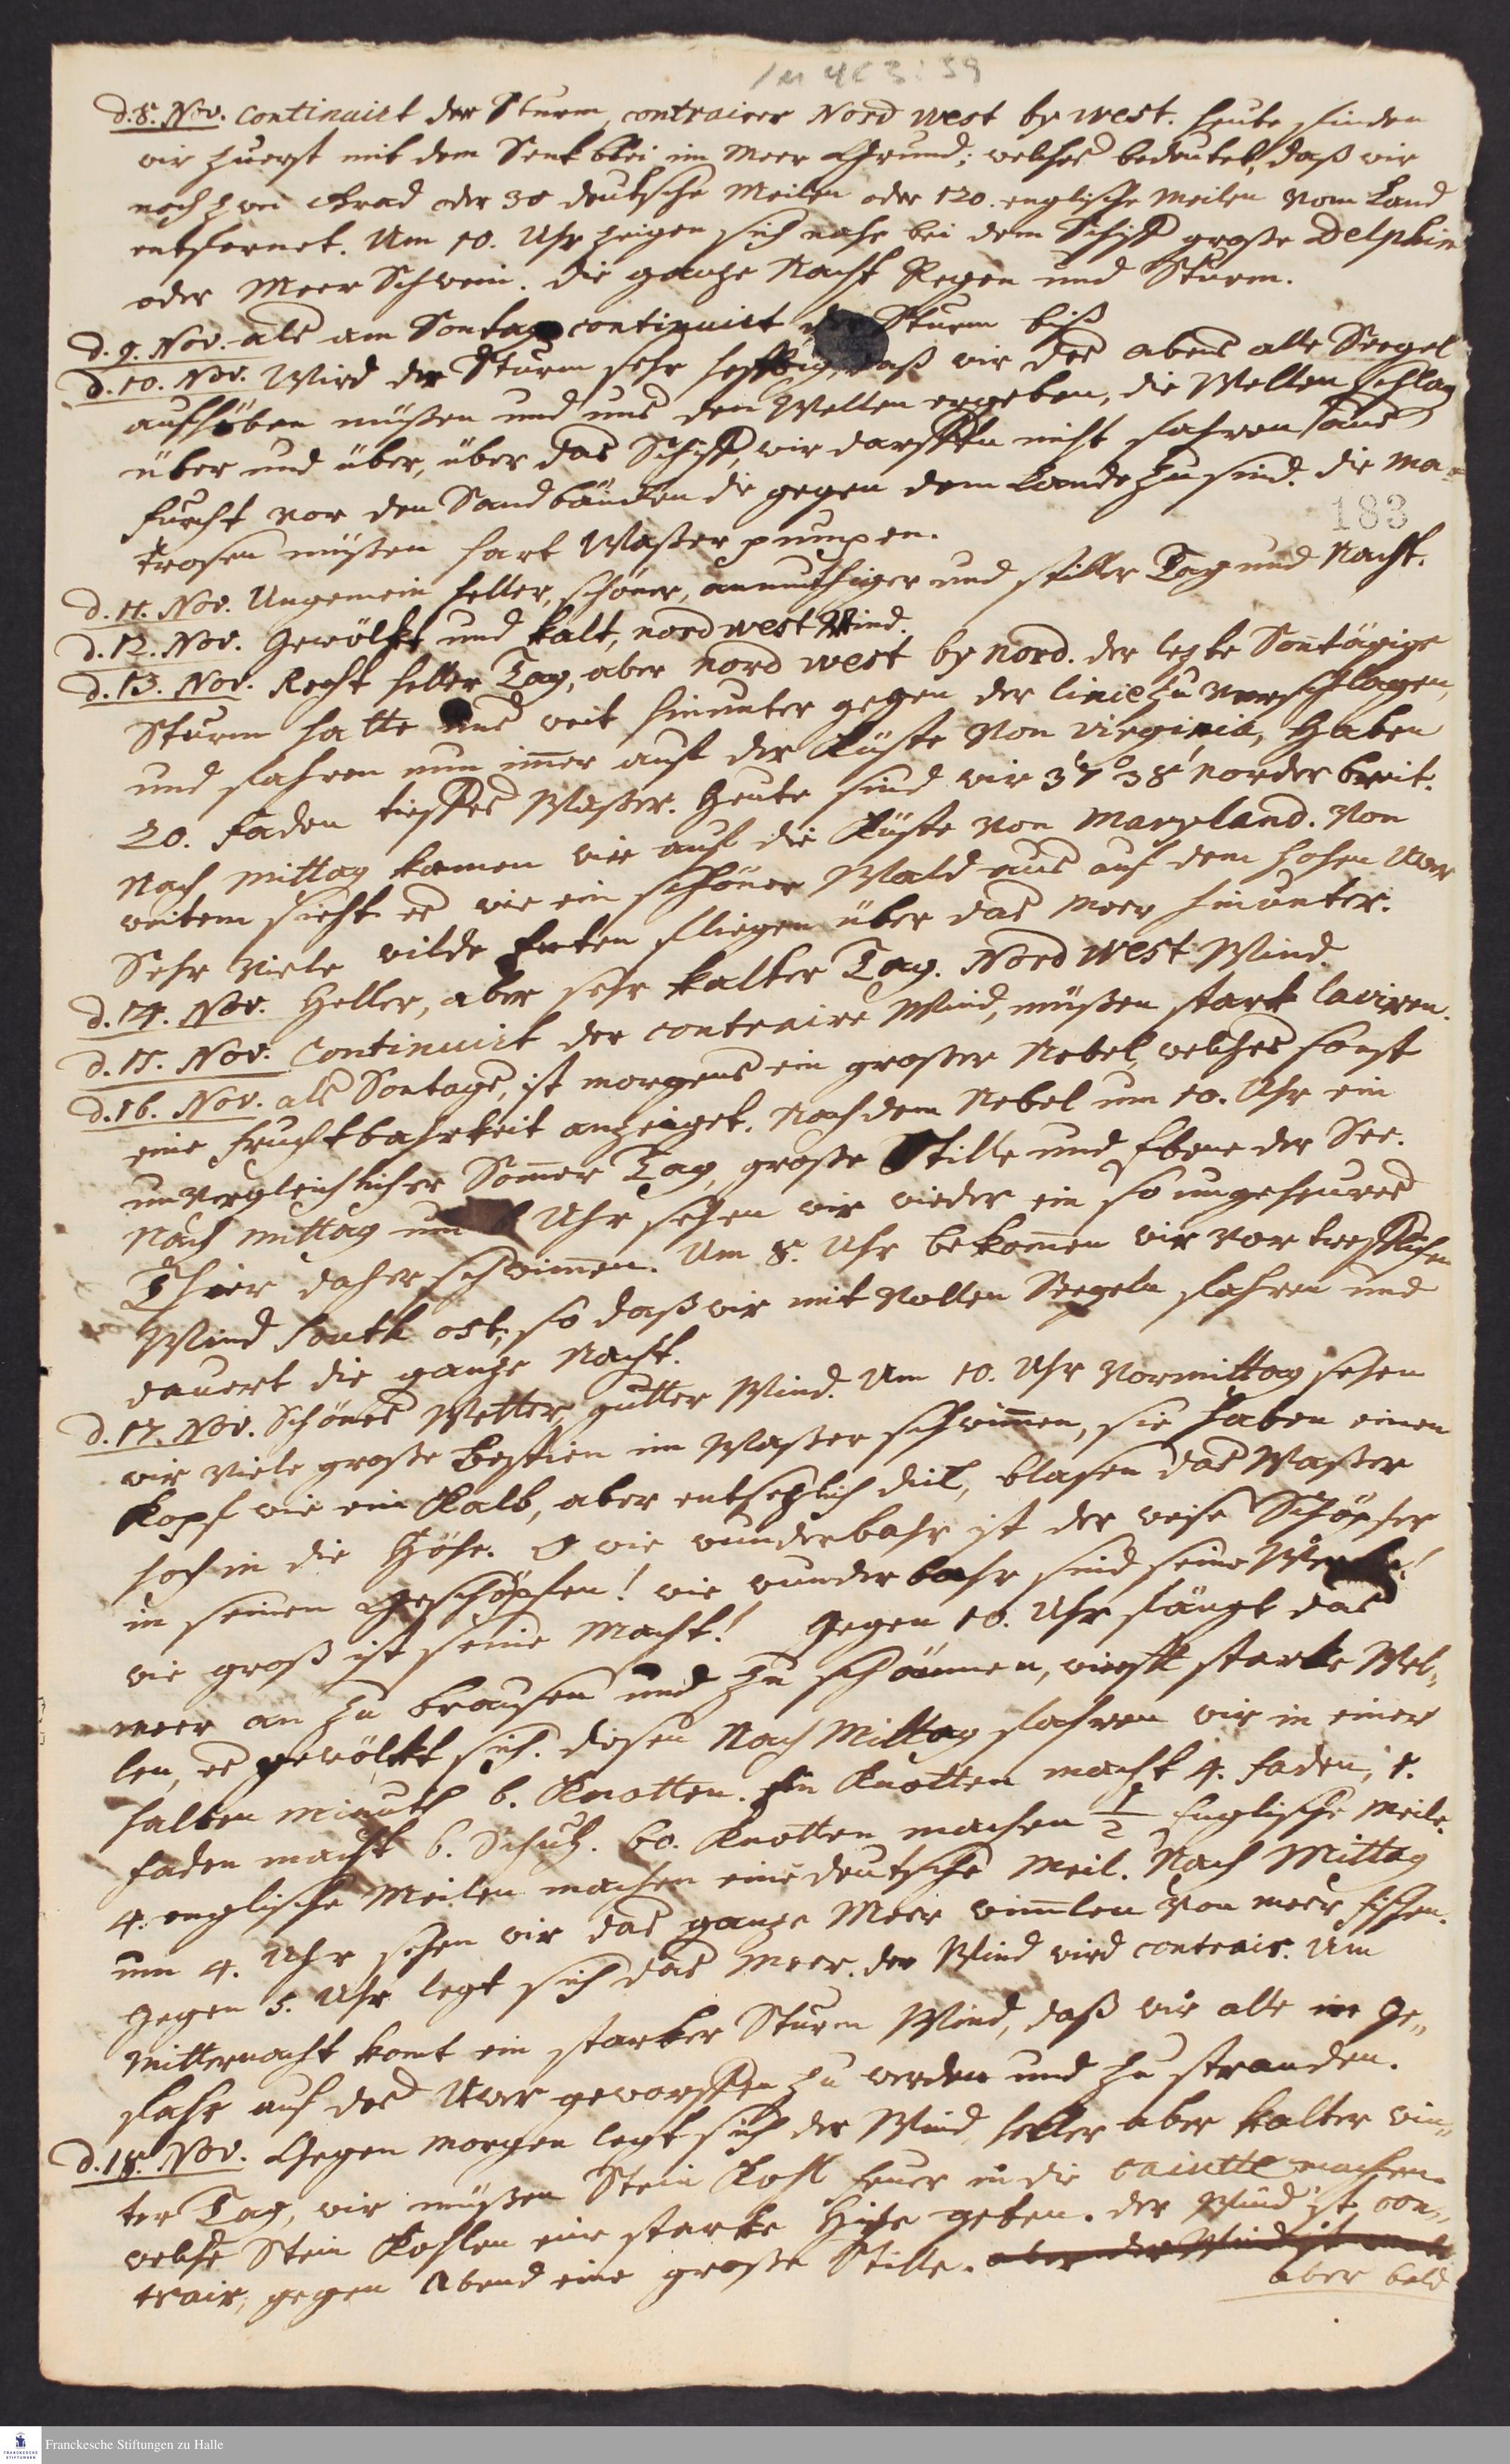 /M 4C3:59
d. 8. Nov. Continuirt der Sturm, contrairer Nord west by west. heute finden
wir zuerst mit dem Senkblei im Meer Grund; welches bedeutet, daß wir
noch zwei Grad oder 30 deutsche Meilen oder 120. englische Meilen vom Land
entfernet. Um 10. Uhr zeigen sich nahe bei dem Schiff große Delphin
oder Meer Schwein. die ganze Nacht Regen und Sturm.
d. 9. Nov. als am Sontag continuirt der Sturm biß
d. 10. Nov. Wird der Sturm sehr hefftig, daß wir des abens alle Seegel
aufhöben müßen und uns den Wellen ergeben, die Wellen schlag
über und über, über das Schiff, wir darfften nicht fahren aus
furcht vor den Sandbäncken die gegen dem Lande zu sind. die Ma-
trosen müßen hart Waßer pumpen.
183
d. 11. Nov. Ungemein heller, schöner, anmuthiger und stiller Tag und Nacht.
d. 12. Nov. Gewölkt und kalt, nord west Wind.
d. 13. Nov. Recht heller Tag, aber nord west by nord. der lezte Sontägige
Sturm hatte uns weit hinunter gegen der linie zu verschlagen,
und fahren nun immer auf der Küste von virginia, Haben
20. faden tieffes Waßer. Heute sind wir 37° 38' norder breit.
Nach mittag kamen wir auf die Küste von Maryland. Von
weitem sieht es wie ein schöner Wald aus auf dem hohen Uver
Sehr viele wilde Enten fliegen über das Meer hinunter.
d. 14. Nov. Heller, aber sehr kalter Tag. Nord West Wind.
d. 15. Nov. Continuirt der contraire Wind, müßen stark laviren.
d. 16. Nov. als Sontags, ist morgens ein großer Nebel, welches sonst
eine fruchtbahrkeit anzeiget. Nach dem Nebel um 10. Uhr ein
unvergleichlicher Somer Tag, große Stille und Ebene der See.
Nach mittag um Uhr sehen wir wieder ein so ungeheures
Thier daher schwimen. Um 8. Uhr bekomen wir vortrefflichen
Wind South ost, so daß wir mit vollen Seegeln fahren und
dauert die ganze Nacht.
d. 17. Nov. Schönes Wetter, gutter Wind. Um 10. Uhr Vormittag sehen
wir viele große Bestien im Waßer schwimen, sie haben einen
Kopf wie ein Kalb, aber entsezlich dick, blasen das Waßer
hoch in die Höhe. O wie wunderbahr ist der weise Schöpfer
in seinen Geschöpfen! wie wunderbahr sind seine Wercke!
wie groß ist seine Macht! Gegen 10. Uhr fängt das
meer an zu brausen und zu schäumen, wirfft starke Wel-
len, es gewölkt sich. diesen Nach Mittag fahren wir in einer
halben minuth 6. Knotten. Ein Knotten macht 4. faden, 1.
faden macht 6. Schuh. 60. Knotten machen 1/2 Englische Meile.
4. englische Meilen machen eine deutsche Meil. Nach Mittag
um 4. Uhr sehen wir das ganze Meer wimlen von meer fischen.
Gegen 5. Uhr legt sich das Meer. der Wind wird contrair. Um
Mitternacht komt ein starker Sturm Wind, daß wir alle in Ge-
fahr auf das Uver geworffen zu werden und zu stranden.
d. 18. Nov. Gegen Morgen legt sich der Wind, heller aber kalter win-
ter Tag, wir müßen Stein Kohl feuer in die caiutte machen.
welche Stein Kohlen eine starke Hize geben. der Wind ist con-
trair, gegen Abend eine große Stille. aber der Wind ist
aber bald
Franckesche Stiftungen zu Halle